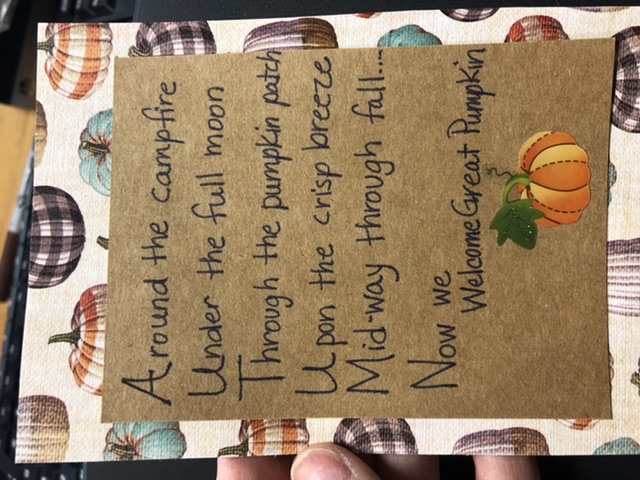 Around the campfire
Under the full moon
Through the pumpkin patch
Upon the crisp breeze
Mid-way through fall...
Now we
Welcome Great Pumpkin